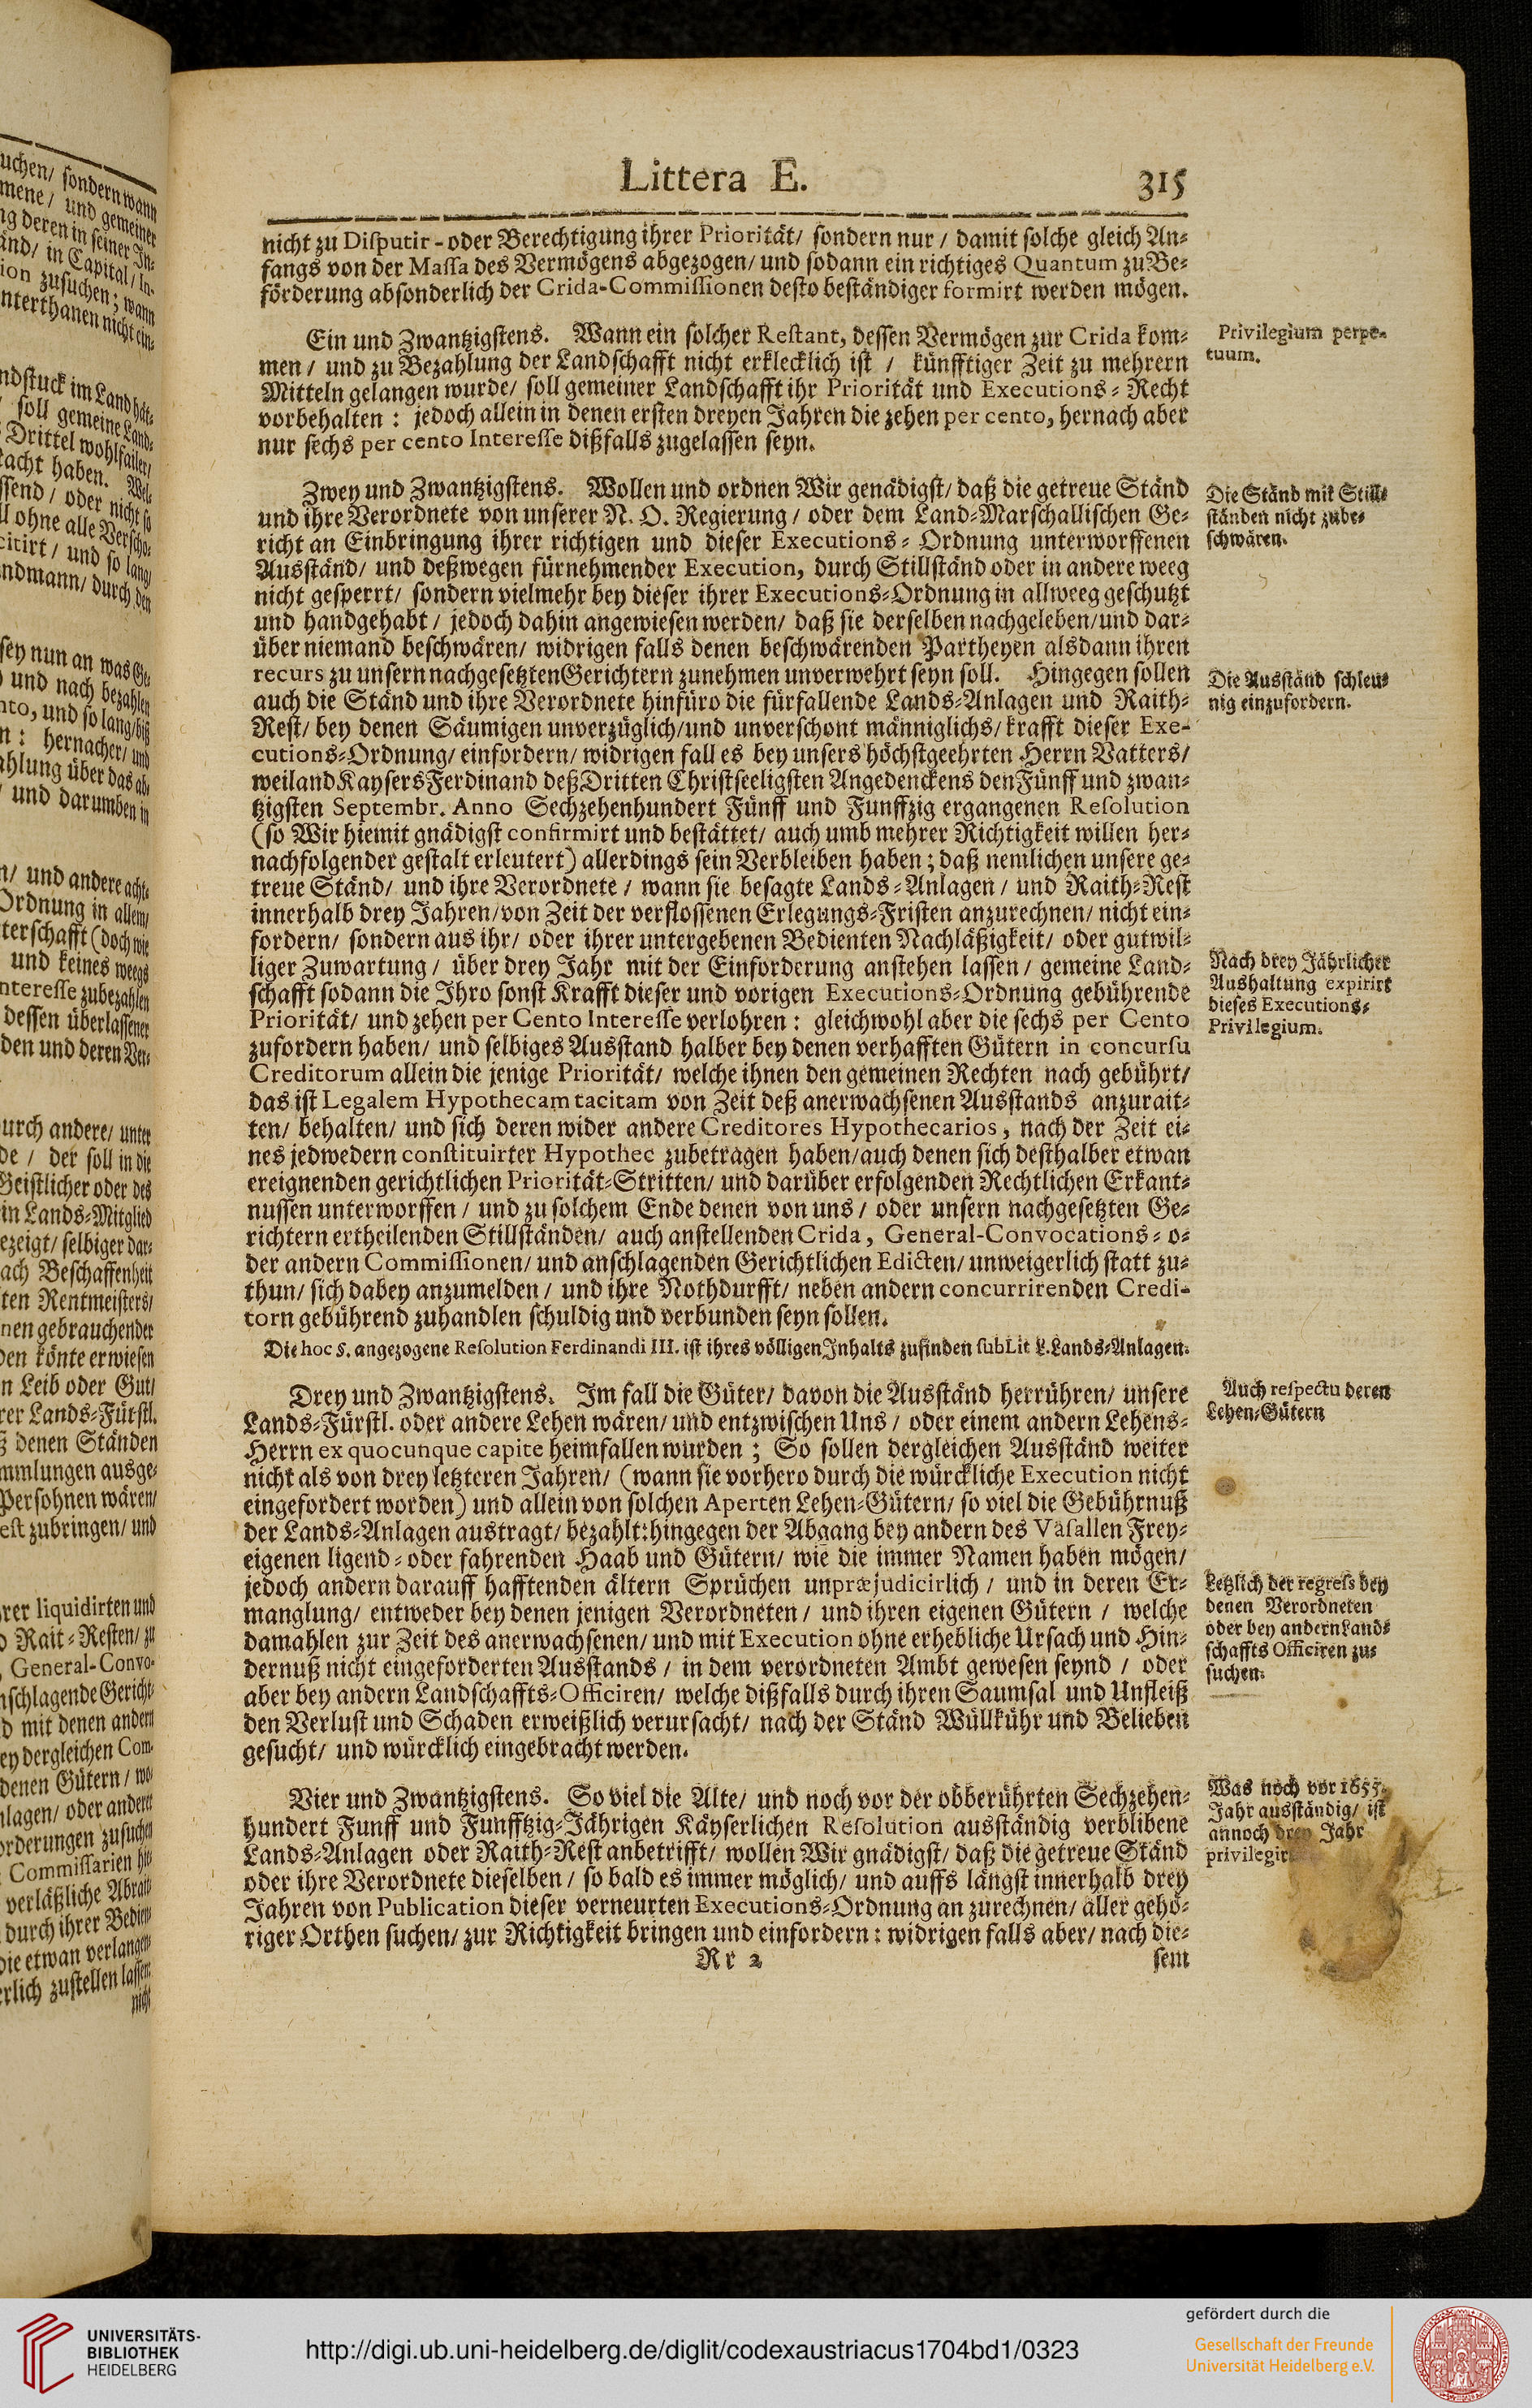 Littera E. 315
nicht zu Disputir-oder Berechtigung ihrer Priorität/ sondern nur / damit solche gleich An-
fangs von der Massa des Vermögens abgezogen/ und sodann ein richtiges Quantum zu Be-
förderung absonderlich der Crida-Commissionen desto beständiger formirt werden mögen.
Ein und Zwantzigstens. Wann ein solcher Restant, dessen Vermögen zur Crida kom-
men / und zu Bezahlung der Landschafft nicht erklecklich ist / künfftiger Zeit zu mehrern
Mitteln gelangen wurde/ soll gemeiner Landschafft ihr Priorität und Executions-Recht
vorbehalten : jedoch allein in denen ersten dreyen Jahren die zehen per cento, hernach aber
nur sechs per cento Interesse dißfalls zugelassen seyn.
Privilegium perpe-
tuum.
Zwey und Zwantzigstens. Wollen und ordnen Wir genädigst/ daß die getreue Ständ
und ihre Verordnete von unserer N. O. Regierung / oder dem Land-Marschallischen Ge-
richt an Einbringung ihrer richtigen und dieser Executions-Ordnung unterworffenen
Ausständ/ und deßwegen fürnehmender Execution, durch Stillständ oder in andere weeg
nicht gesperrt/ sondern vielmehr bey dieser ihrer Executions-Ordnung in allweeg geschutzt
und handgehabt / jedoch dahin angewiesen werden/ daß sie derselben nachgeleben/und dar-
über niemand beschwären/ widrigen falls denen beschwärenden Partheyen alsdann ihren
recurs zu unsern nachgesetzten Gerichtern zunehmen unverwehrt seyn soll. Hingegen sollen
auch die Ständ und ihre Verordnete hinfüro die fürfallende Lands-Anlagen und Raith-
Rest/ bey denen Säumigen unverzüglich/und unverschont männiglichs/ krafft dieser Exe-
cutions-Ordnung/ einfordern/ widrigen fall es bey unsers höchstgeehrten Herrn Vatters/
weiland Kaysers Ferdinand deß Dritten Christseeligsten Angedenckens den Fünff und zwan-
tzigsten Septembr. Anno Sechzehenhundert Fünff und Funffzig ergangenen Resolution
(so Wir hiemit gnädigst confirmirt und bestättet/ auch umb mehrer Richtigkeit willen her-
nachfolgender gestalt erleutert) allerdings sein Verbleiben haben; daß nemlichen unsere ge-
treue Ständ/ und ihre Verordnete / wann sie besagte Lands-Anlagen / und Raith-Rest
innerhalb drey Jahren/von Zeit der verflossenen Erlegungs-Fristen anzurechnen/ nicht ein-
fordern/ sondern aus ihr/ oder ihrer untergebenen Bedienten Nachläßigkeit/ oder gutwil-
liger Zuwartung / über drey Jahr mit der Einforderung anstehen lassen / gemeine Land-
schafft sodann die Ihro sonst Krafft dieser und vorigen Executions-Ordnung gebührende
Priorität/ und zehen per Cento Interesse verlohren : gleichwohl aber die sechs per Cento
zufordern haben/ und selbiges Ausstand halber bey denen verhafften Gütern in concursu
Creditorum allein die jenige Priorität/ welche ihnen den gemeinen Rechten nach gebührt/
das ist Legalem Hypothecam tacitam von Zeit deß anerwachsenen Ausstands anzurait-
ten/ behalten/ und sich deren wider andere Creditores Hypothecarios, nach der Zeit ei-
nes jedwedern constituirter Hypothec zubetragen haben/auch denen sich desthalber etwan
ereignenden gerichtlichen Priorität-Stritten/ und darüber erfolgenden Rechtlichen Erkant-
nussen unterworffen / und zu solchem Ende denen von uns / oder unsern nachgesetzten Ge-
richtern ertheilenden Stillständen/ auch anstellenden Crida, General-Convocations- o-
der andern Commissionen/ und anschlagenden Gerichtlichen Edicten/ unweigerlich statt zu-
thun/ sich dabey anzumelden / und ihre Nothdurfft/ neben andern concurrirenden Credi-
torn gebührend zuhandlen schuldig und verbunden seyn sollen.
Die Ständ mit Still-
ständen nicht zube-
schwären.
Die Ausständ schleu-
nig einzufordern.
Nach drey Jährlicher
Aushaltung expirirt
dieses Executions-
Privilegium.
Die hoc §. angezogene Resolution Ferdinandi III. ist ihres völligen Inhalts zufinden sub Lit L. Lands-Anlagen.
Drey und Zwantzigstens. Im fall die Güter/ davon die Ausständ herrühren/ unsere
Lands-Fürstl. oder andere Lehen wären/ und entzwischen Uns / oder einem andern Lehens-
Herrn ex quocunque capite heimfallen wurden ; So sollen dergleichen Ausständ weiter
nicht als von drey letzteren Jahren/ (wann sie vorhero durch die würckliche Execution nicht
eingefordert worden) und allein von solchen Aperten Lehen-Gütern/ so viel die Gebührnuß
der Lands-Anlagen austragt/ bezahlt: hingegen der Abgang bey andern des Vasallen Frey-
eigenen ligend-oder fahrenden Haab und Gütern/ wie die immer Namen haben mögen/
jedoch andern darauff hafftenden ältern Sprüchen unpræjudicirlich / und in deren Er-
manglung/ entweder bey denen jenigen Verordneten / und ihren eigenen Gütern / welche
damahlen zur Zeit des anerwachsenen/ und mit Execution ohne erhebliche Ursach und Hin-
dernuß nicht eingeforderten Ausstands / in dem verordneten Ambt gewesen seynd / oder
aber bey andern Landschaffts-Officiren/ welche dißfalls durch ihren Saumsal und Unfleiß
den Verlust und Schaden erweißlich verursacht/ nach der Ständ Wüllkühr und Belieben
gesucht/ und würcklich eingebracht werden.
Auch respectu deren
Lehen-Gütern
Letzlich der regress bey
denen Verordneten
oder bey andern Land-
schaffts Officiren zu-
suchen.
Vier und Zwantzigstens. So viel die Alte/ und noch vor der obberührten Sechzehen-
hundert Funff und Funfftzig-Jährigen Käyserlichen Resolution ausständig verblibene
Lands-Anlagen oder Raith-Rest anbetrifft/ wollen Wir gnädigst/ daß die getreue Ständ
oder ihre Verordnete dieselben / so bald es immer möglich/ und auffs längst innerhalb drey
Jahren von Publication dieser verneurten Executions-Ordnung an zurechnen/ aller gehö-
riger Orthen suchen/ zur Richtigkeit bringen und einfordern : widrigen falls aber/ nach die-
Was noch vor 1655.
Jahr ausständig/ ist
annoch drey Jahr
Rr 2 sem
UNIVERSITÄTS-
BIBLIOTHEK
HEIDELBERG
http://digi.ub.uni-heidelberg.de/diglit/codexaustriacus1704bd1/0323
gefördert durch die
Gesellschaft der Freunde
Universität Heidelberg e.V.